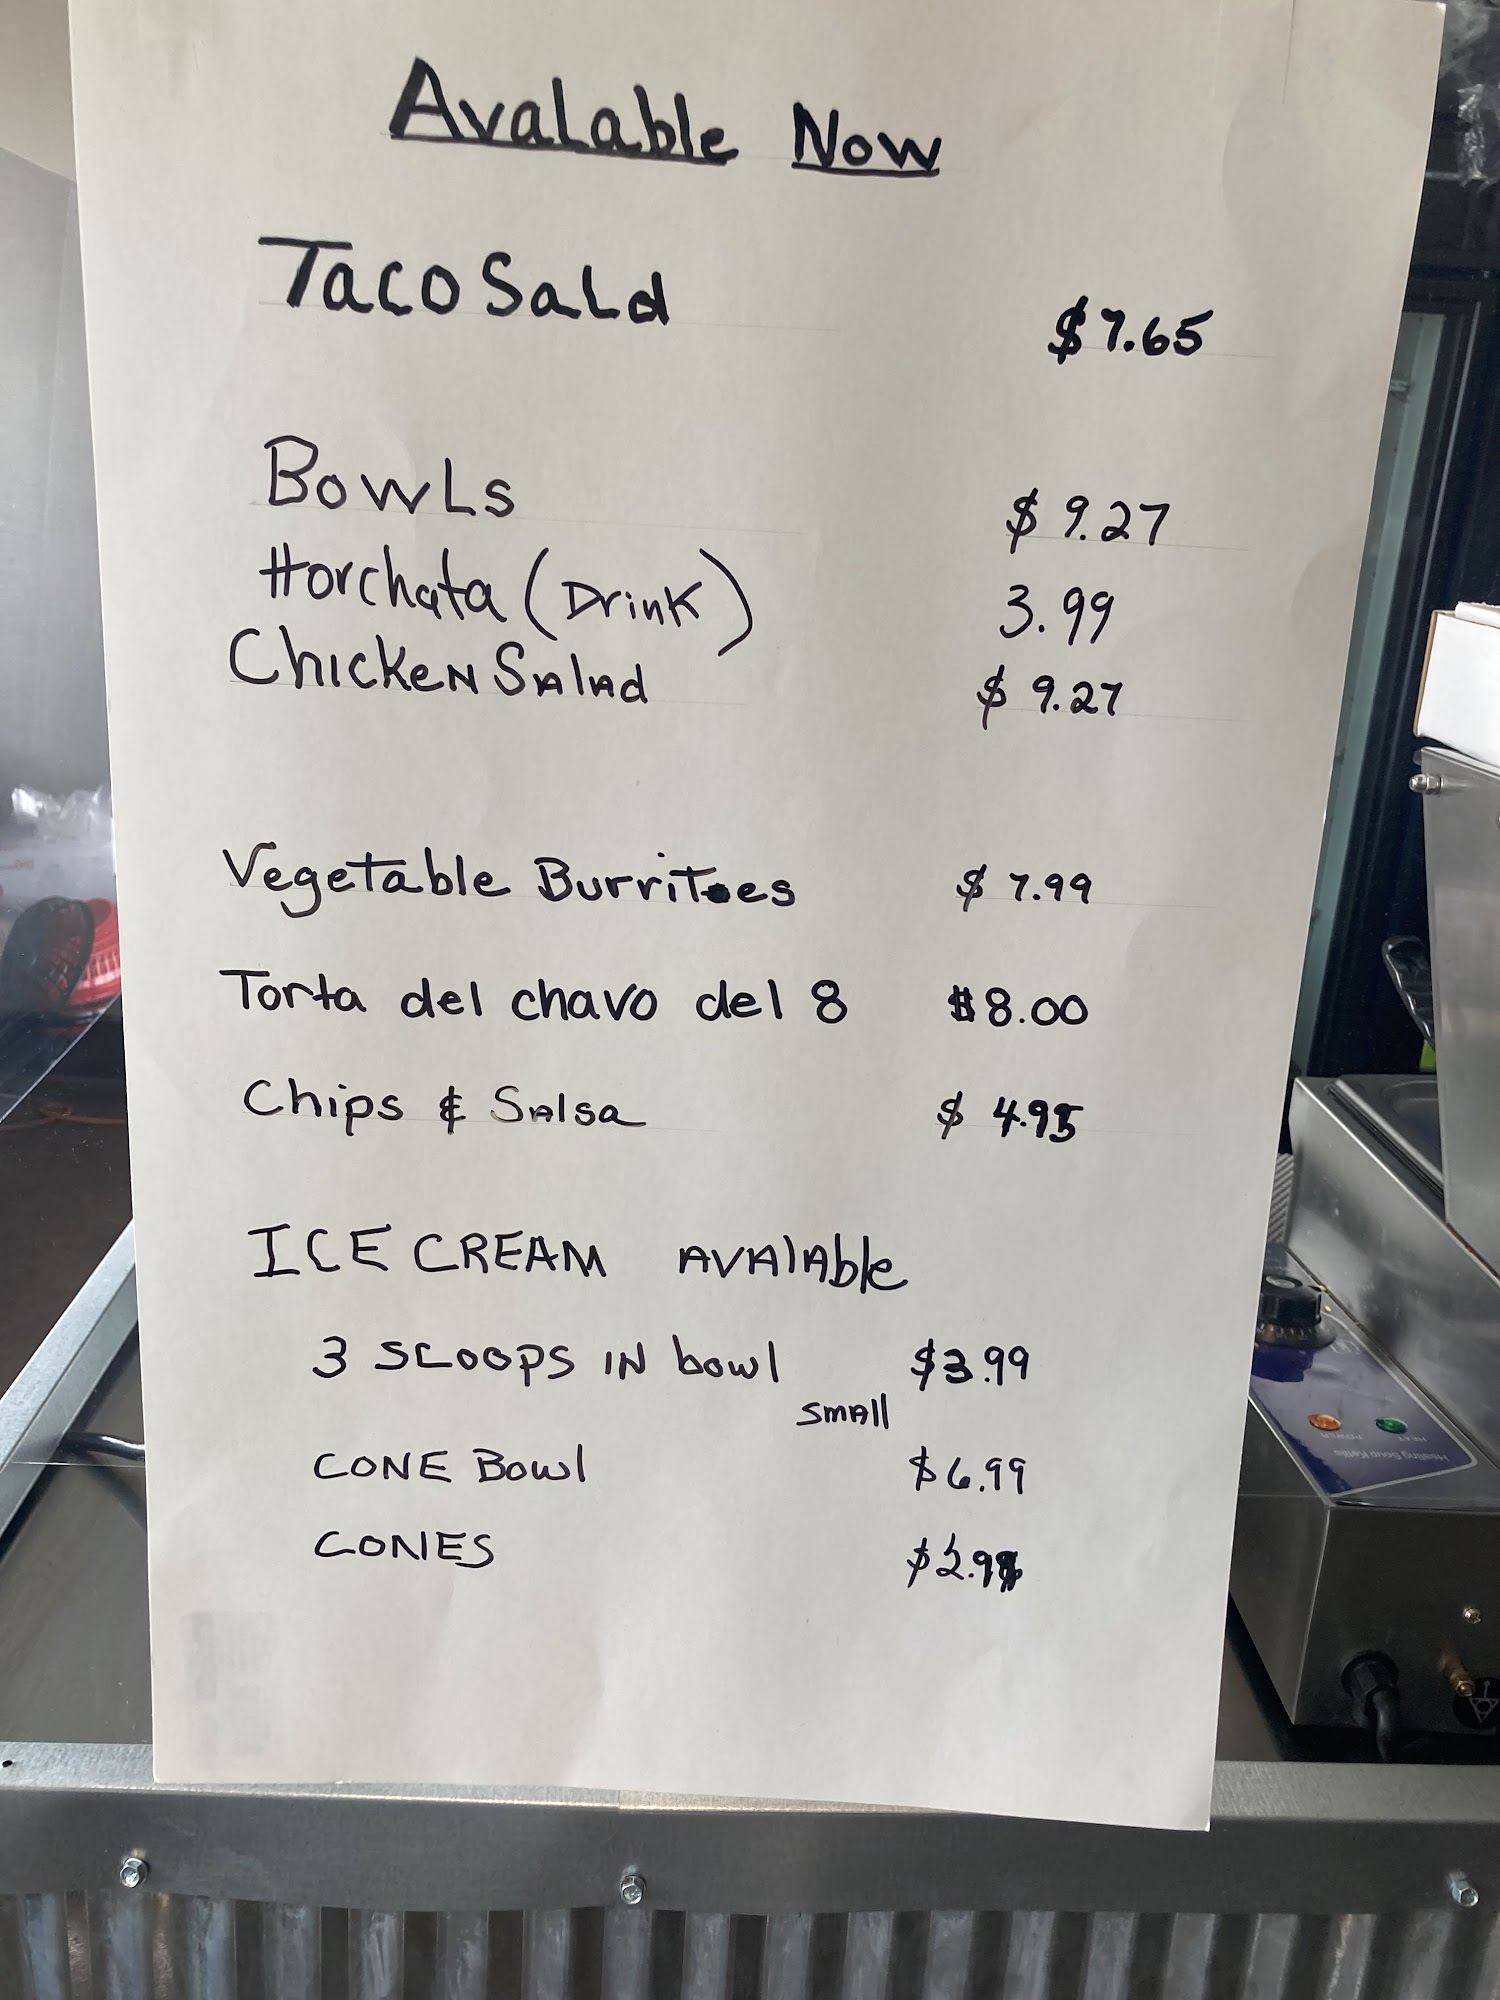 Avalable Now
Taco Sald $7.65
Bowls $9.27
Horchata (Drink) 3.99
Chicken Salad $9.27
Vegetable Burritoes $7.99
Torta del chavo del 8 $8.00
Chips & Salsa $4.95
ICE CREAM AVAlAble
3 SCOOPS IN bowl $3.99
small
CONE Bowl $6.99
CONES
HEAT
POWER